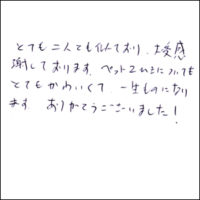 とても二人とも似ており、大変感
謝しております。ペット2ひきについても
とてもかわいくて、一生ものになり
ます。ありがとうございました!